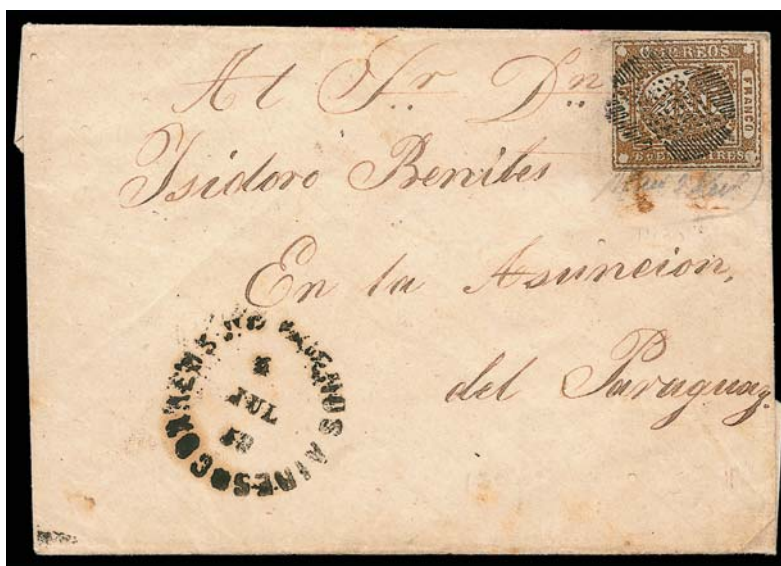 Al Sr. Dn.
Isidoro Benites
En la Asuncion,
del Paraguay.
CORREOS
FRANCO
Bs. ENS AIRES
CORREOS DE BUENOS AIRES
JUL